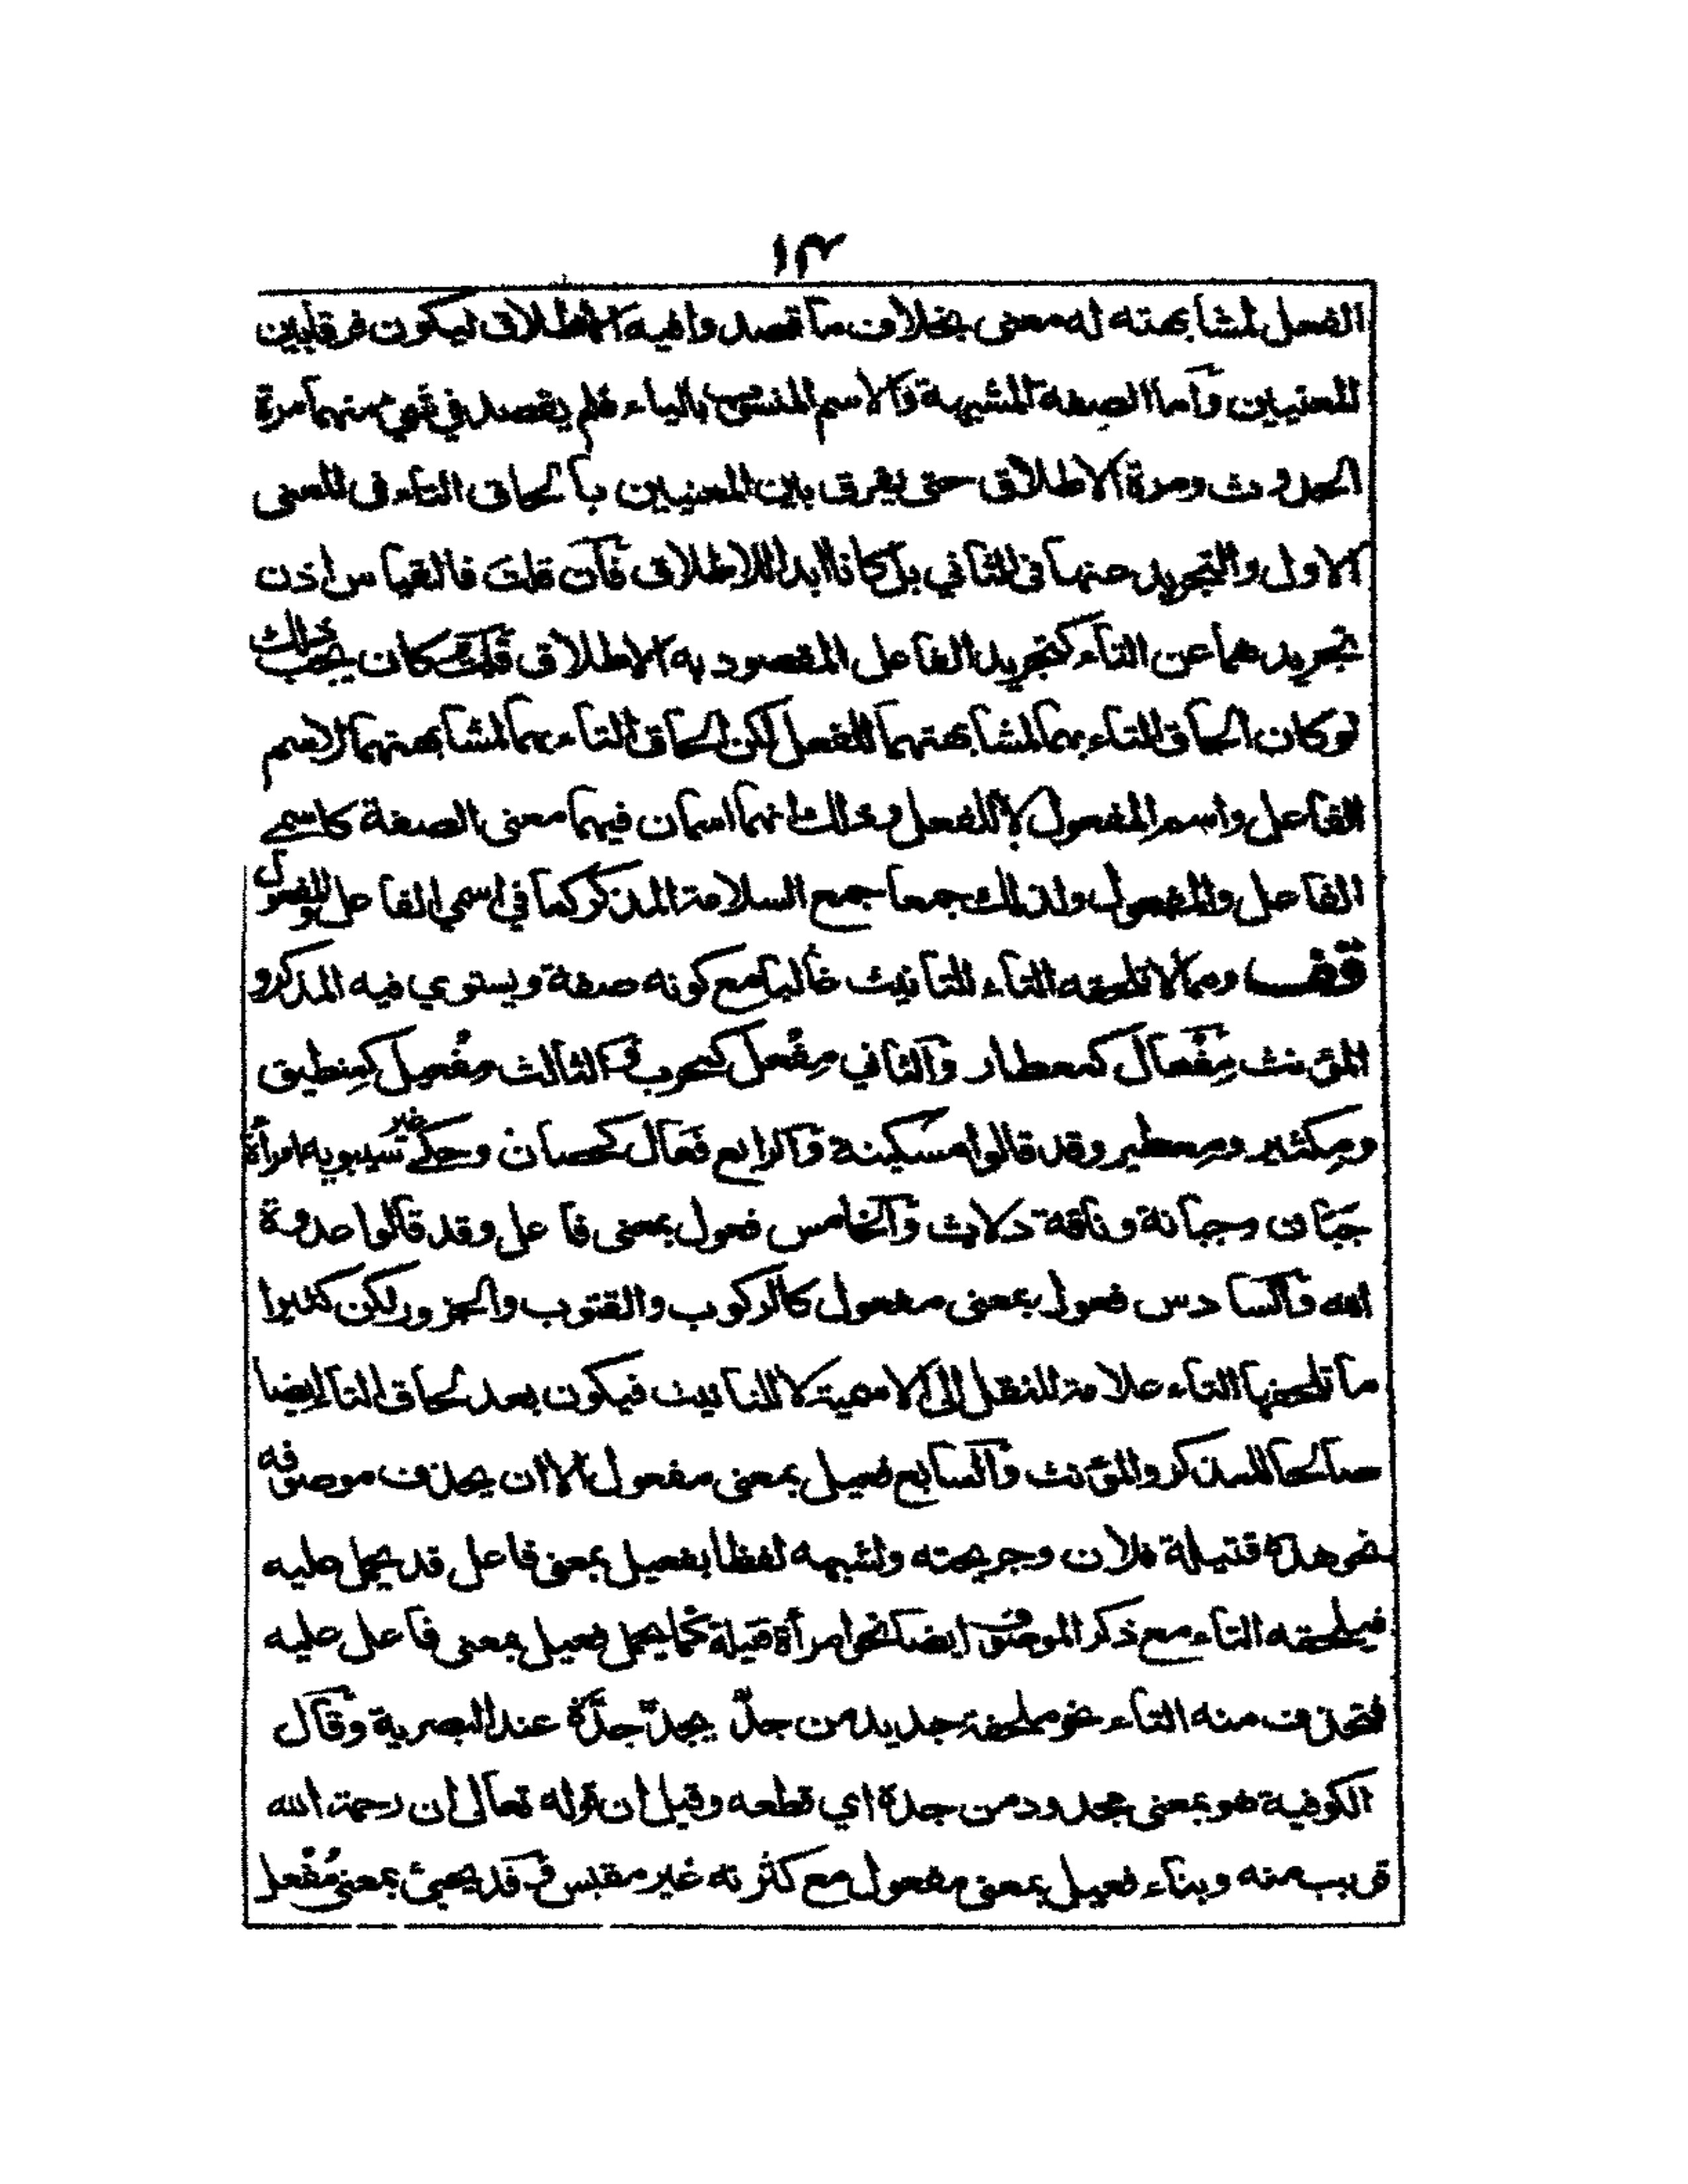 ١٣
الفعل لمشابهته له معنى بخلاف ما قصدوا فيه الاطلاق ليكون فرقا بين
المعنيين وأما الصفة المشبهة والاسم المنسوب بالياء فلم يقصد في شيء منهما مرة
الحدوث ومرة الاطلاق حتى يفرق بين المعنيين بالحاق التاء في المعنى
الاول والتجريد عنها في الثاني بل كانا ابدا للاطلاق فان قلت فالقياس اذن
تجريدهما عن التاء كتجريد الفاعل المقصود به الاطلاق قلت كان يجب ذلك
لو كان الحاق التاء بهما لمشابهتهما للفعل لكن الحاق التاء بهما لمشابهتهما لاسم
الفاعل واسم المفعول لا للفعل وذلك انهما اسمان فيهما معنى الصفة كاسمي
الفاعل والمفعول ولذلك جمعا جمع السلامة المذكر كما في اسمي الفاعل والمفعول
قف ومما لا تلحقه التاء للتانيث غالبا مع كونه صفة ويستوي فيه المذكر و
المؤنث مِفْعال كمعطار والثاني مِفْعل كمحرب والثالث مِفْعيل كمِنطيق
ومِكثير ومِعطير وقد قالوا مسكينة والرابع فَعال كحصان وحكى غير سيبويه امرأة
جَبَان وجبانة وناقة دلاث والخامس فعول بمعنى فاعل وقد قالوا عدوة
الله والسادس فعول بمعنى مفعول كالركوب والقتوب والجزور لكن كثيرا
ما تلحقها التاء علامة للنقل الى الاسمية لا للتانيث فيكون بعد لحاق التا ايضا
صالحا للمذكر والمؤنث والسابع فعيل بمعنى مفعول الا ان يحذف موصوفه
نحو هذه قتيلة فلان وجريحته ولشبهه لفظا بفعيل بمعنى فاعل قد يحمل عليه
فيلحقه التاء مع ذكر الموصوف ايضا نحو امرأة قتيلة كما يحمل فعيل بمعنى فاعل عليه
فتحذف منه التاء نحو ملحفة جديد من جدّ يجدّ جدّة عند البصرية وقال
الكوفية هو بمعنى مجدود من جدة اي قطعه وقيل ان قوله تعالى ان رحمة الله
قريب منه وبناء فعيل بمعنى مفعول مع كثرته غير مقيس وقد يجيئ بمعنى مُفْعل